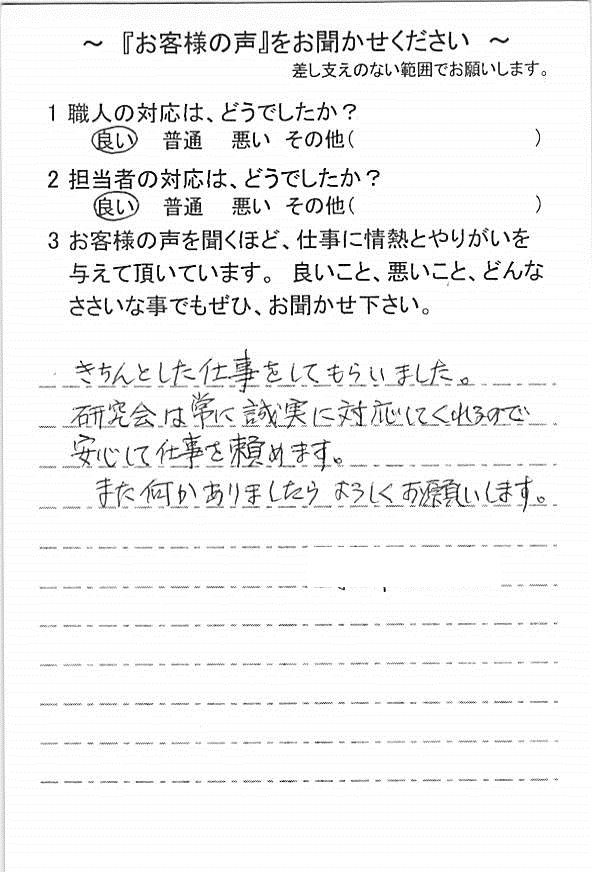 ～ 『お客様の声』をお聞かせください ～
差し支えのない範囲でお願いします。
1 職人の対応は、どうでしたか？
良い 普通 悪い その他( )
2 担当者の対応は、どうでしたか？
良い 普通 悪い その他( )
3 お客様の声を聞くほど、仕事に情熱とやりがいを
与えて頂いています。 良いこと、悪いこと、どんな
ささいな事でもぜひ、お聞かせ下さい。
きちんとした仕事をしてもらいました。
研究会は常に誠実に対応してくれるので
安心して仕事を頼めます。
また何かありましたら よろしくお願いします。